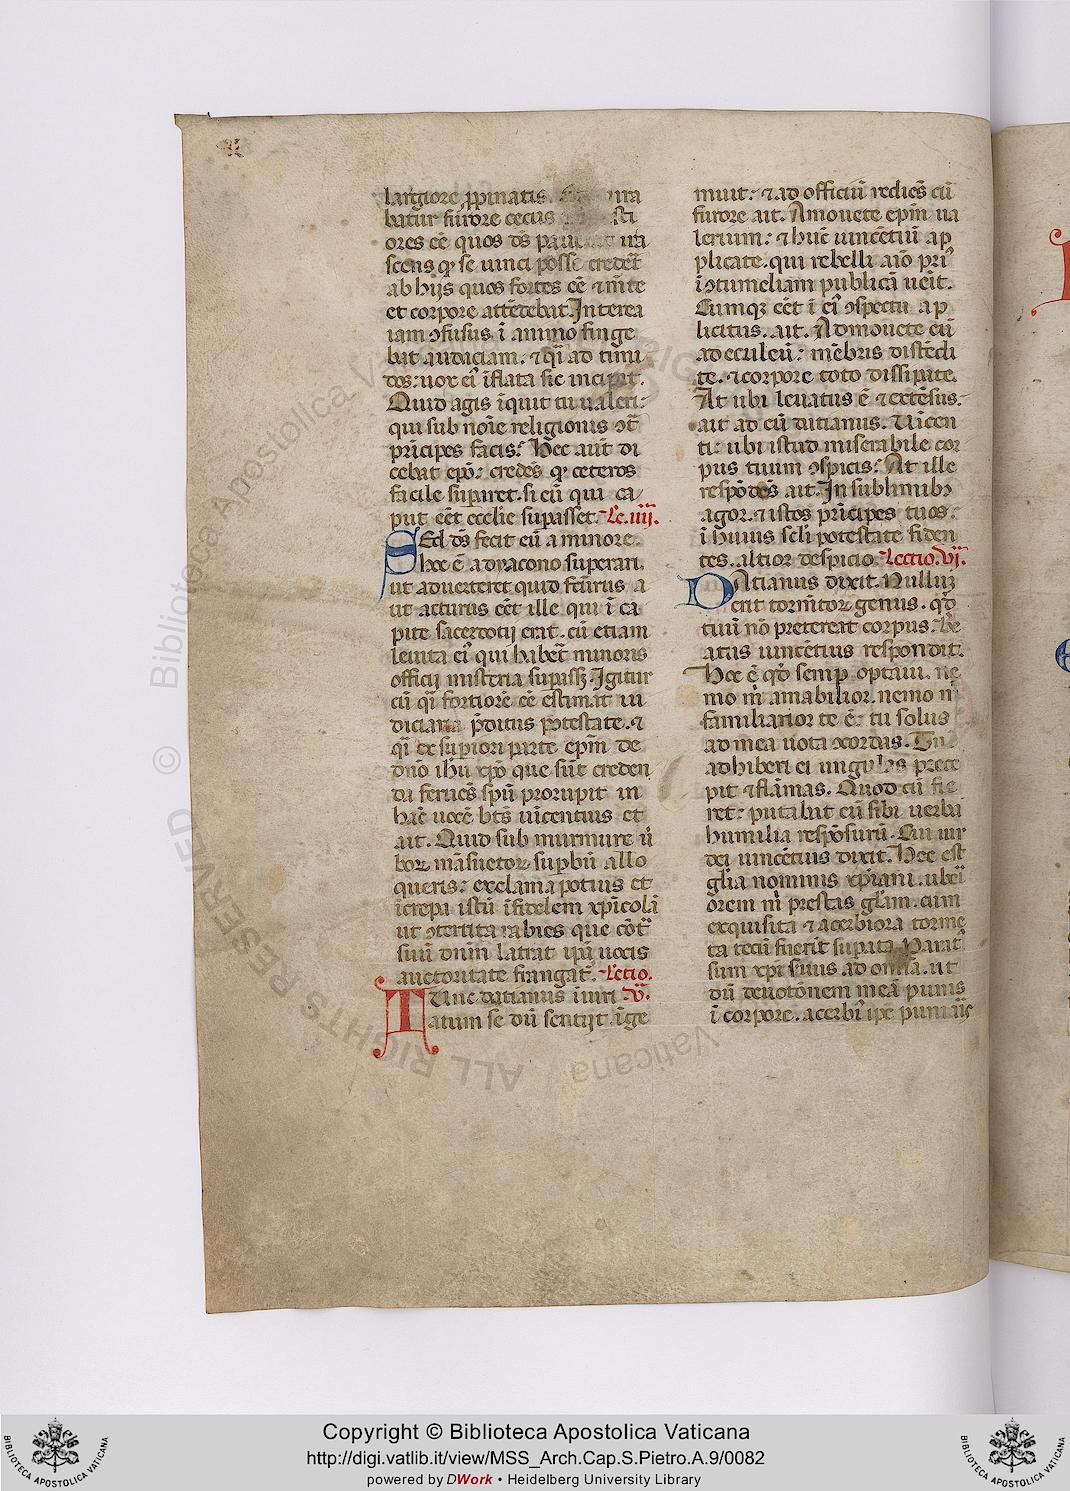 largiore ꝓpinatis.
batur furore cecus
ores eē quos dn̄s
scens qꝫ se uinci posse crederet̄
ab hijs quos fortes eē & m̄te
et corpore attēdebat. Interea
iam ↄfusus ī animo finge
bat audaciam. & qͣ ad timi
dos: uox eiꝰ īflata sic incipit.
Quid agis īquit tu ualeri:
qui sub noīe religionis ↄt̄
prīcipes facis? Hec aut̄ di
cebat epō: credēs qꝫ ceteros
facile supaꝛet. si eū qui ca/
put eēt ecclīe supasset. Lc. iiij.
Sed dn̄s fecit eū a minore.
hoc ē a dyacono superari.
ut aduerteret quid feūrus a
ut acturus eēt ille qui ī ca
pite sacerdotij erat. cū etiam
leuita eiꝰ qui habet minoris
officij misteria supassꝫ. Igitur
cū qͣ fortiorē eē estimat iu
diciaria p̄ditus potestate. &
qͣ de supiori parte epm̄ de
dnō ihu xpō que sūt creden
da ferues spū prorupit in
hac uocē bt̄s uīcentius et
ait. Quid sub murmure ū
boꝝ māsuetoꝝ supbū allo
queris: exclama potius et
īcrepa istū īfidelem xp̄icolā
ut ↄterrita rabies que cōt
suū dnm̄ latrat ipā uocis
auctoritate frangat. Lectio.
Tunc datianus īuiri V.
tatum se dū sentijt. īge
muit: & ad officiū rediēs cū
furore ait. Amouete epm̄ ua
lerium: & hūc uincētiū ap
plicate. qui rebelli aīo pͥꝰ
īↄtumeliam publicā uēit.
Cumqꝫ eēt ī eiꝰ ↄspectu ap
licitus. ait. Admouete eū
ad eculeū: mēbris distēdi
te. & corpore toto dissipate.
At ubi leuatus ē & extēsus.
ait ad eū datianus. Uīcen
ti: ubi istud miserabile cor
pus tuum ↄspicis? At ille
respōdēs ait. In sublimibꝫ
agor. & istos prīcipes tuos.
ī huius scl̄i potestate fiden
tes. altior despicio. Lectio. Vj.
Datianus dixit. Nulluꝫ
erit tormētoꝝ genus. qd̄
tuū nō pretereat corpus. Be
atus uincētius respondit.
Hoc ē qd̄ semꝑ optaui. ne
mo m̄ amabilior. nemo m̄
familiarior te ē: tu solus
ad mea uota ↄcordas. Tūc
adhiberi ei ungulas prece
pit & flāmas. Quod cū fie
ret: putabat eū sibi uerba
humilia respōsurū. Cui uir
dei uincētius dixit. Hoc est
gl̄ia nominis xp̄iani. uberi
orem m̄ prestas gl̄am. cum
exquisita & acerbiora torme
ta tecū fuerit supata. Parat
sum xpi suus ad omia. ut
dū deuotōnem meā punis
ī corpore. acerbiꝰ ipē puniaris
Copyright © Biblioteca Apostolica Vaticana
http://digi.vatlib.it/view/MSS_Arch.Cap.S.Pietro.A.9/0082
powered by DWork • Heidelberg University Library
BIBLIOTECA APOSTOLICA VATICANA
BIBLIOTECA APOSTOLICA VATICANA
© Biblioteca Apostolica Vaticana
ALL RIGHTS RESERVED